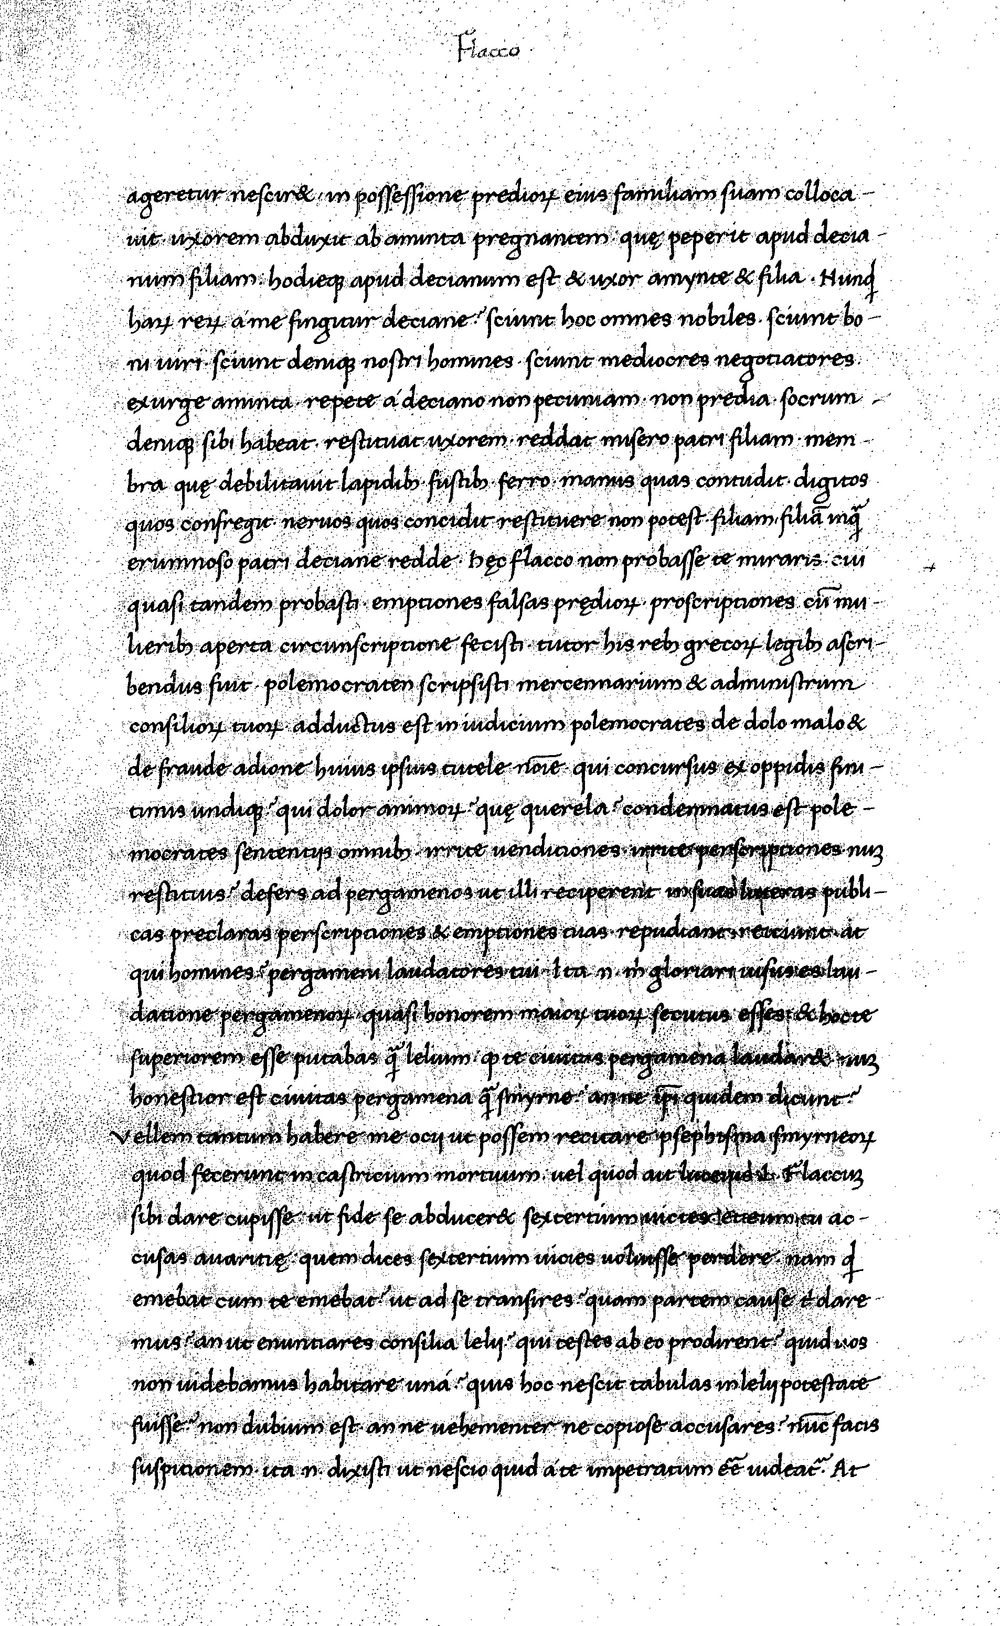 Flacco
ageretur nescir&. in possessione predioꝝ eius familiam suam colloca-
uit. uxorem abduxit ab aminta pregnantem. quę peperit apud decia-
num filiam. hodieqꝫ apud decianum est & uxor amynte & filia. Nunꝗ
haꝝ reꝝ a me fingitur deciane? sciunt hoc omnes nobiles. sciunt bo-
ni uiri. sciunt deniqꝫ nostri homines. sciunt mediocres negotiatores.
exurge aminta. repete á deciano non pecuniam. non predia. socrum
deniqꝫ sibi habeat. restituat uxorem. reddat misero patri filiam. mem-
bra quę debilitauit lapidibꝫ fustibꝫ ferro. manus quas contudit. digitos
quos confregit. neruos quos concidit restituere non potest. filiam filiā inꝗ̄
erumnoso patri deciane redde. hęc flacco non probasse te miraris. cui
quasi tandem probasti. emptiones falsas prędioꝝ. proscriptiones cū mu-
lieribꝫ aperta circunscriptione fecisti. tutor his rebꝫ grecoꝝ legibꝫ ascri-
bendus fuit. polemocraten scripsisti mercennarium & administrum
consilioꝝ tuoꝝ. adductus est in iudicium polemocrates de dolo malo &
de fraude adione huius ipsius tutele noīe. qui concursus ex oppidis fini-
timis undiqꝫ? qui dolor animoꝝ? quę querela? condemnatus est pole-
mocrates sententijs omnibꝫ. irrite uenditiones. irrite perscriptiones nuꝫ
restituis? defers ad pergamenos ut illi reciperent in suas litteras publi-
cas preclaras perscriptiones & emptiones tuas. repudiant. reiciunt. at
qui homines? pergameni laudatores tui. Ita n. m̄ gloriari uisus es lau-
datione pergamenoꝝ quasi honorem maioꝝ tuoꝝ secutus esses. & hoc te
superiorem esse putabas ꝗ̄ lelium. ꝙ te ciuitas pergamena laudar& nuꝫ
honestior est ciuitas pergamena ꝗ̄ smyrne? an ne ip̄i quidem dicunt?
Vellem tantum habere me ocij ut possem recitare psephisma smyrneoꝝ
quod fecerunt in castricium mortuum. uel quod aut Flaccuꝫ
sibi dare cupisse ut fide se abducer& sextertium uicies tu ac-
cusas auaritię quem dices sextertium uicies uoluisse perdere. nam ꝗd
emebat cum te emebat? ut ad se transires? quam partem cause t̄ dare
mus? an ut enuntiares consilia lelij? qui testes ab eo prodirent? quid nos
non uidebamus habitare uná? quis hoc nescit tabulas in lelij potestate
fuisse? non dubium est. an ne uehementer ne copiose accusares? nūc facis
suspitionem. ita n. dixisti ut nescio quid á te impetratum eē uideat᷑. At